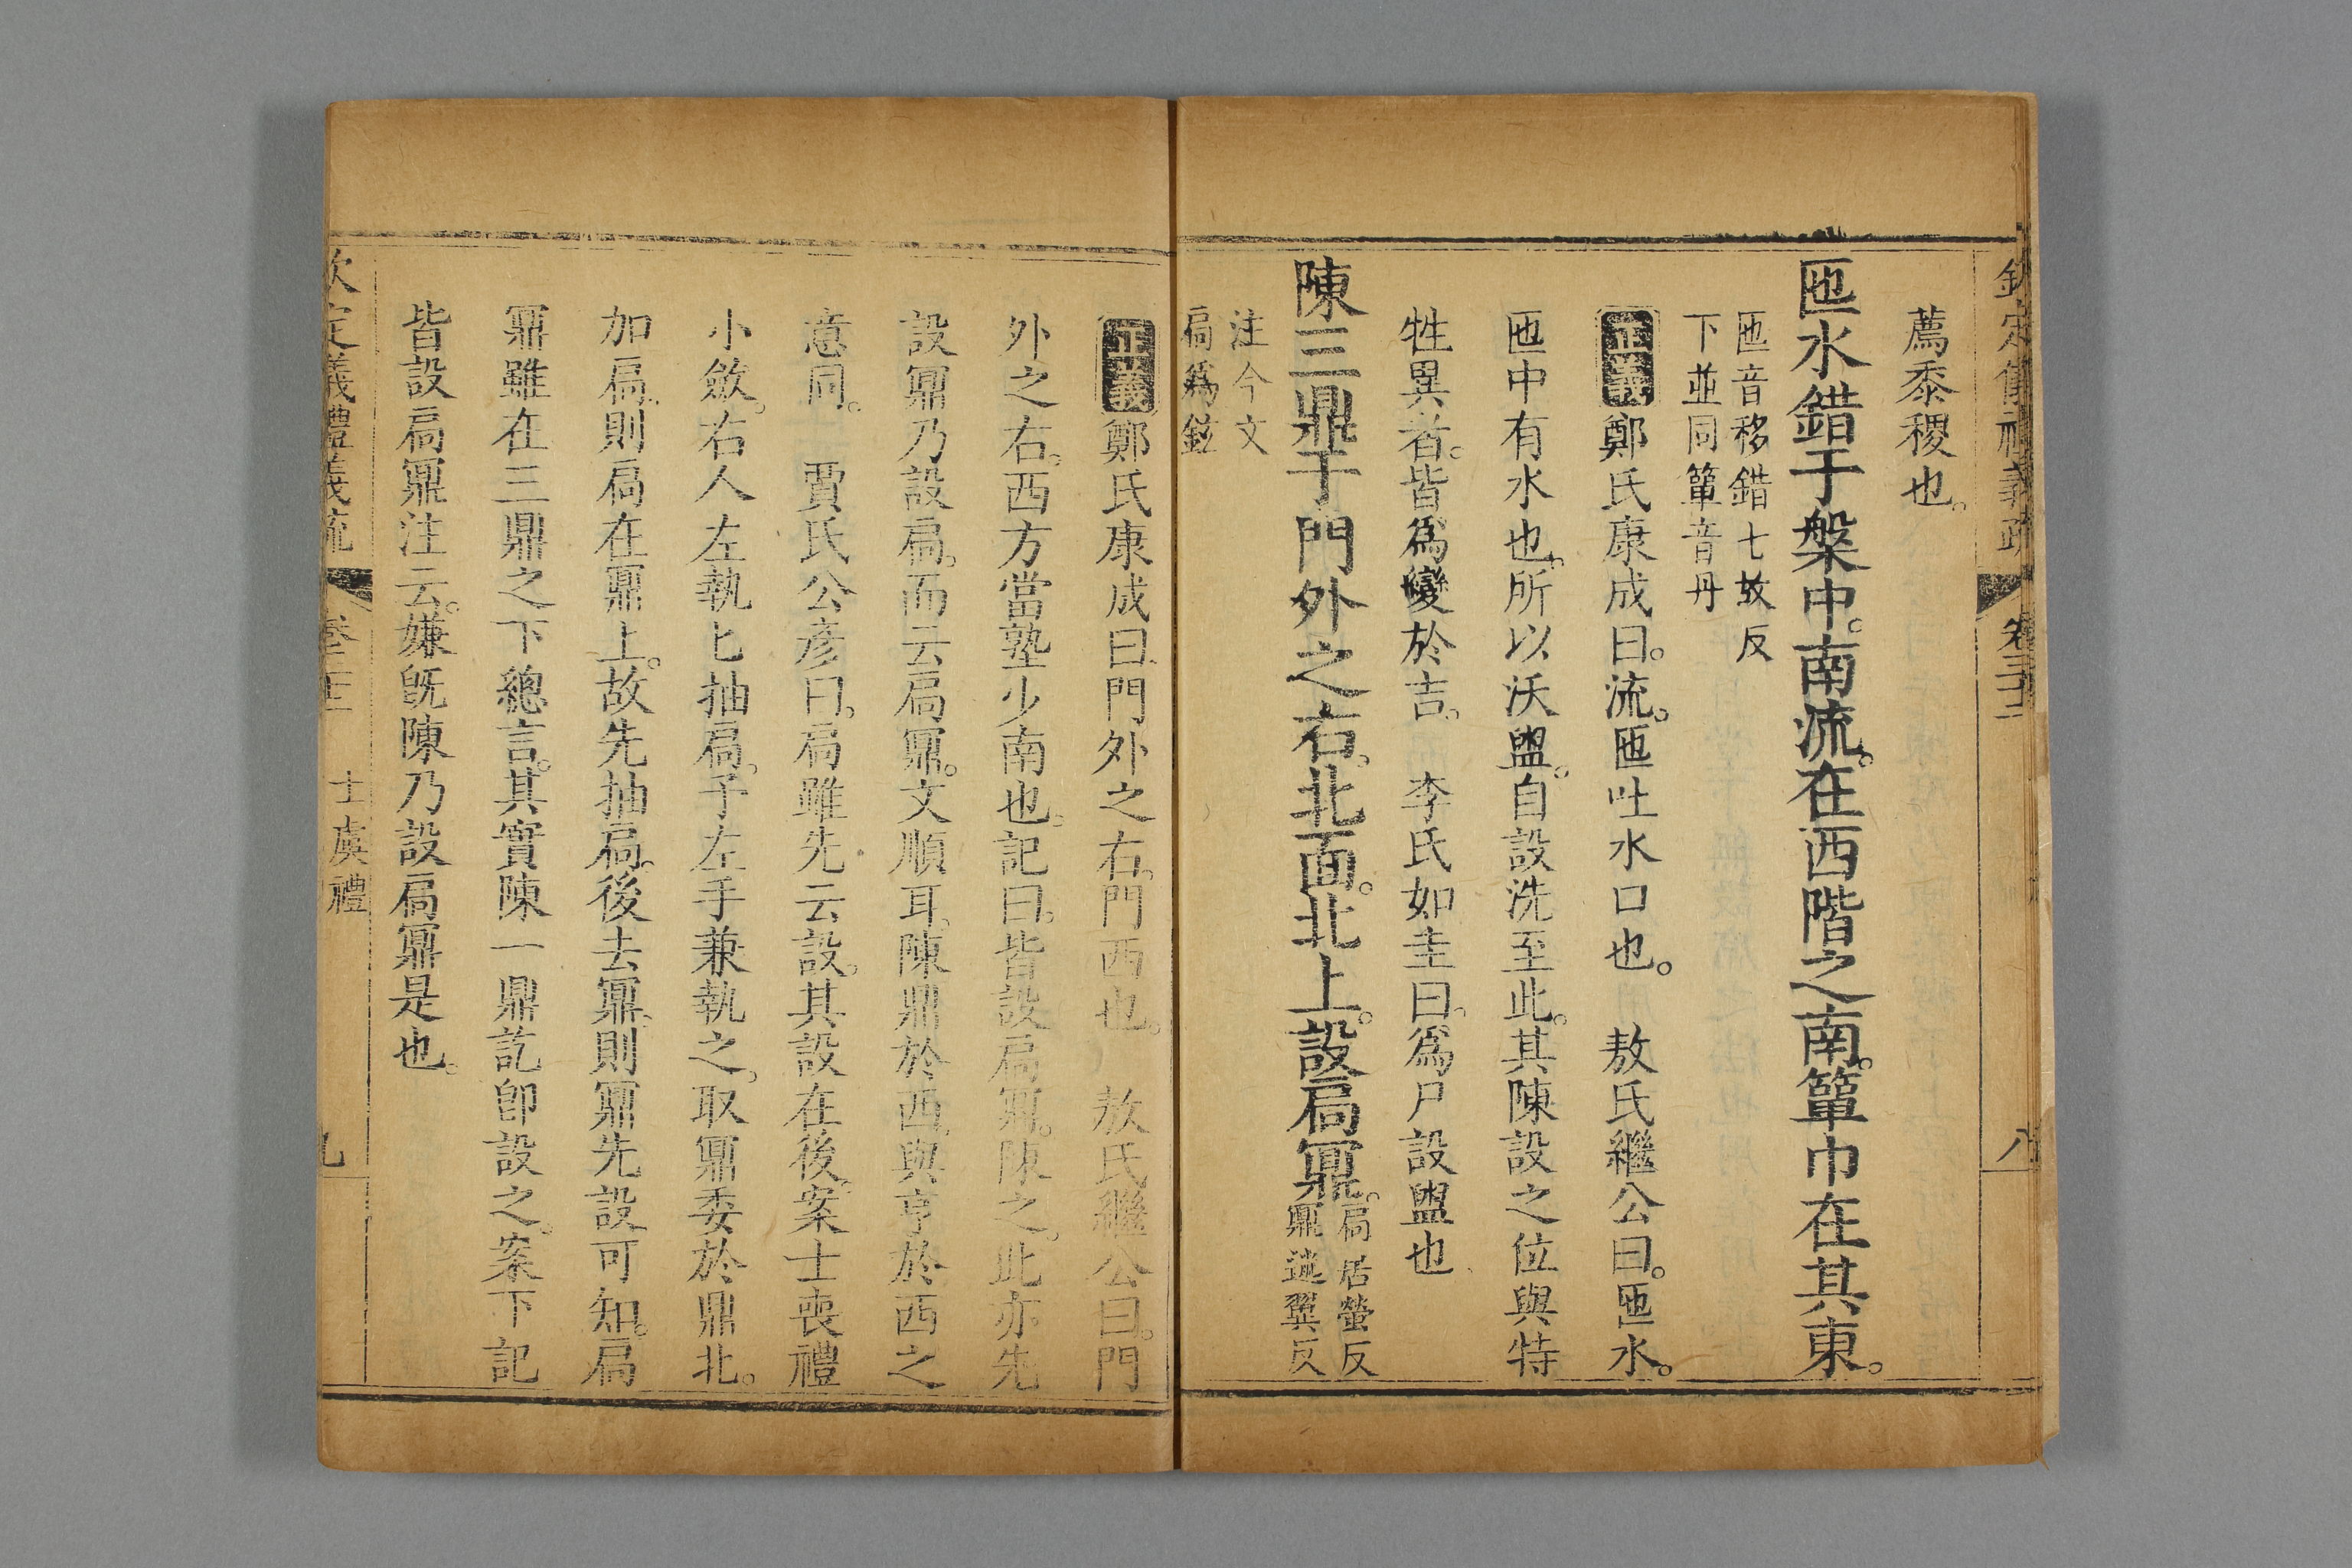 欽定儀禮義疏 卷三十三 八
薦黍稷也。
匜水錯于槃中。南流。在西階之南。簞巾在其東。
匜音移錯七故反
下並同簞音丹
正義鄭氏康成曰。流。匜吐水口也。 敖氏繼公曰。匜水。
匜中有水也。所以沃盥。自設洗至此。其陳設之位與特
牲異者。皆爲變於吉。 李氏如圭曰。爲尸設盥也
陳三鼎于門外之右。北面。北上。設扃鼏。扃居螢反
鼏迷翼反
注今文
扃爲鉉
正義鄭氏康成曰。門外之右。門西也。 敖氏繼公曰。門
外之右。西方當塾少南也。記曰。皆設扃鼏。陳之。此亦先
設鼏乃設扃。而云扃鼏。文順耳。陳鼎於西。與亨於西之
意同。 賈氏公彥曰。扃雖先云設。其設在後。案士喪禮
小斂。右人左執匕抽扃。予左手兼執之。取鼏委於鼎北。
加扃。則扃在鼏上。故先抽扃。後去鼏。則鼏先設可知。扃
鼏雖在三鼎之下總言。其實陳一鼎訖卽設之。案下記
皆設扃鼏注云。嫌旣陳乃設扃鼏是也。
欽定儀禮義疏 卷三十三 士虞禮 九